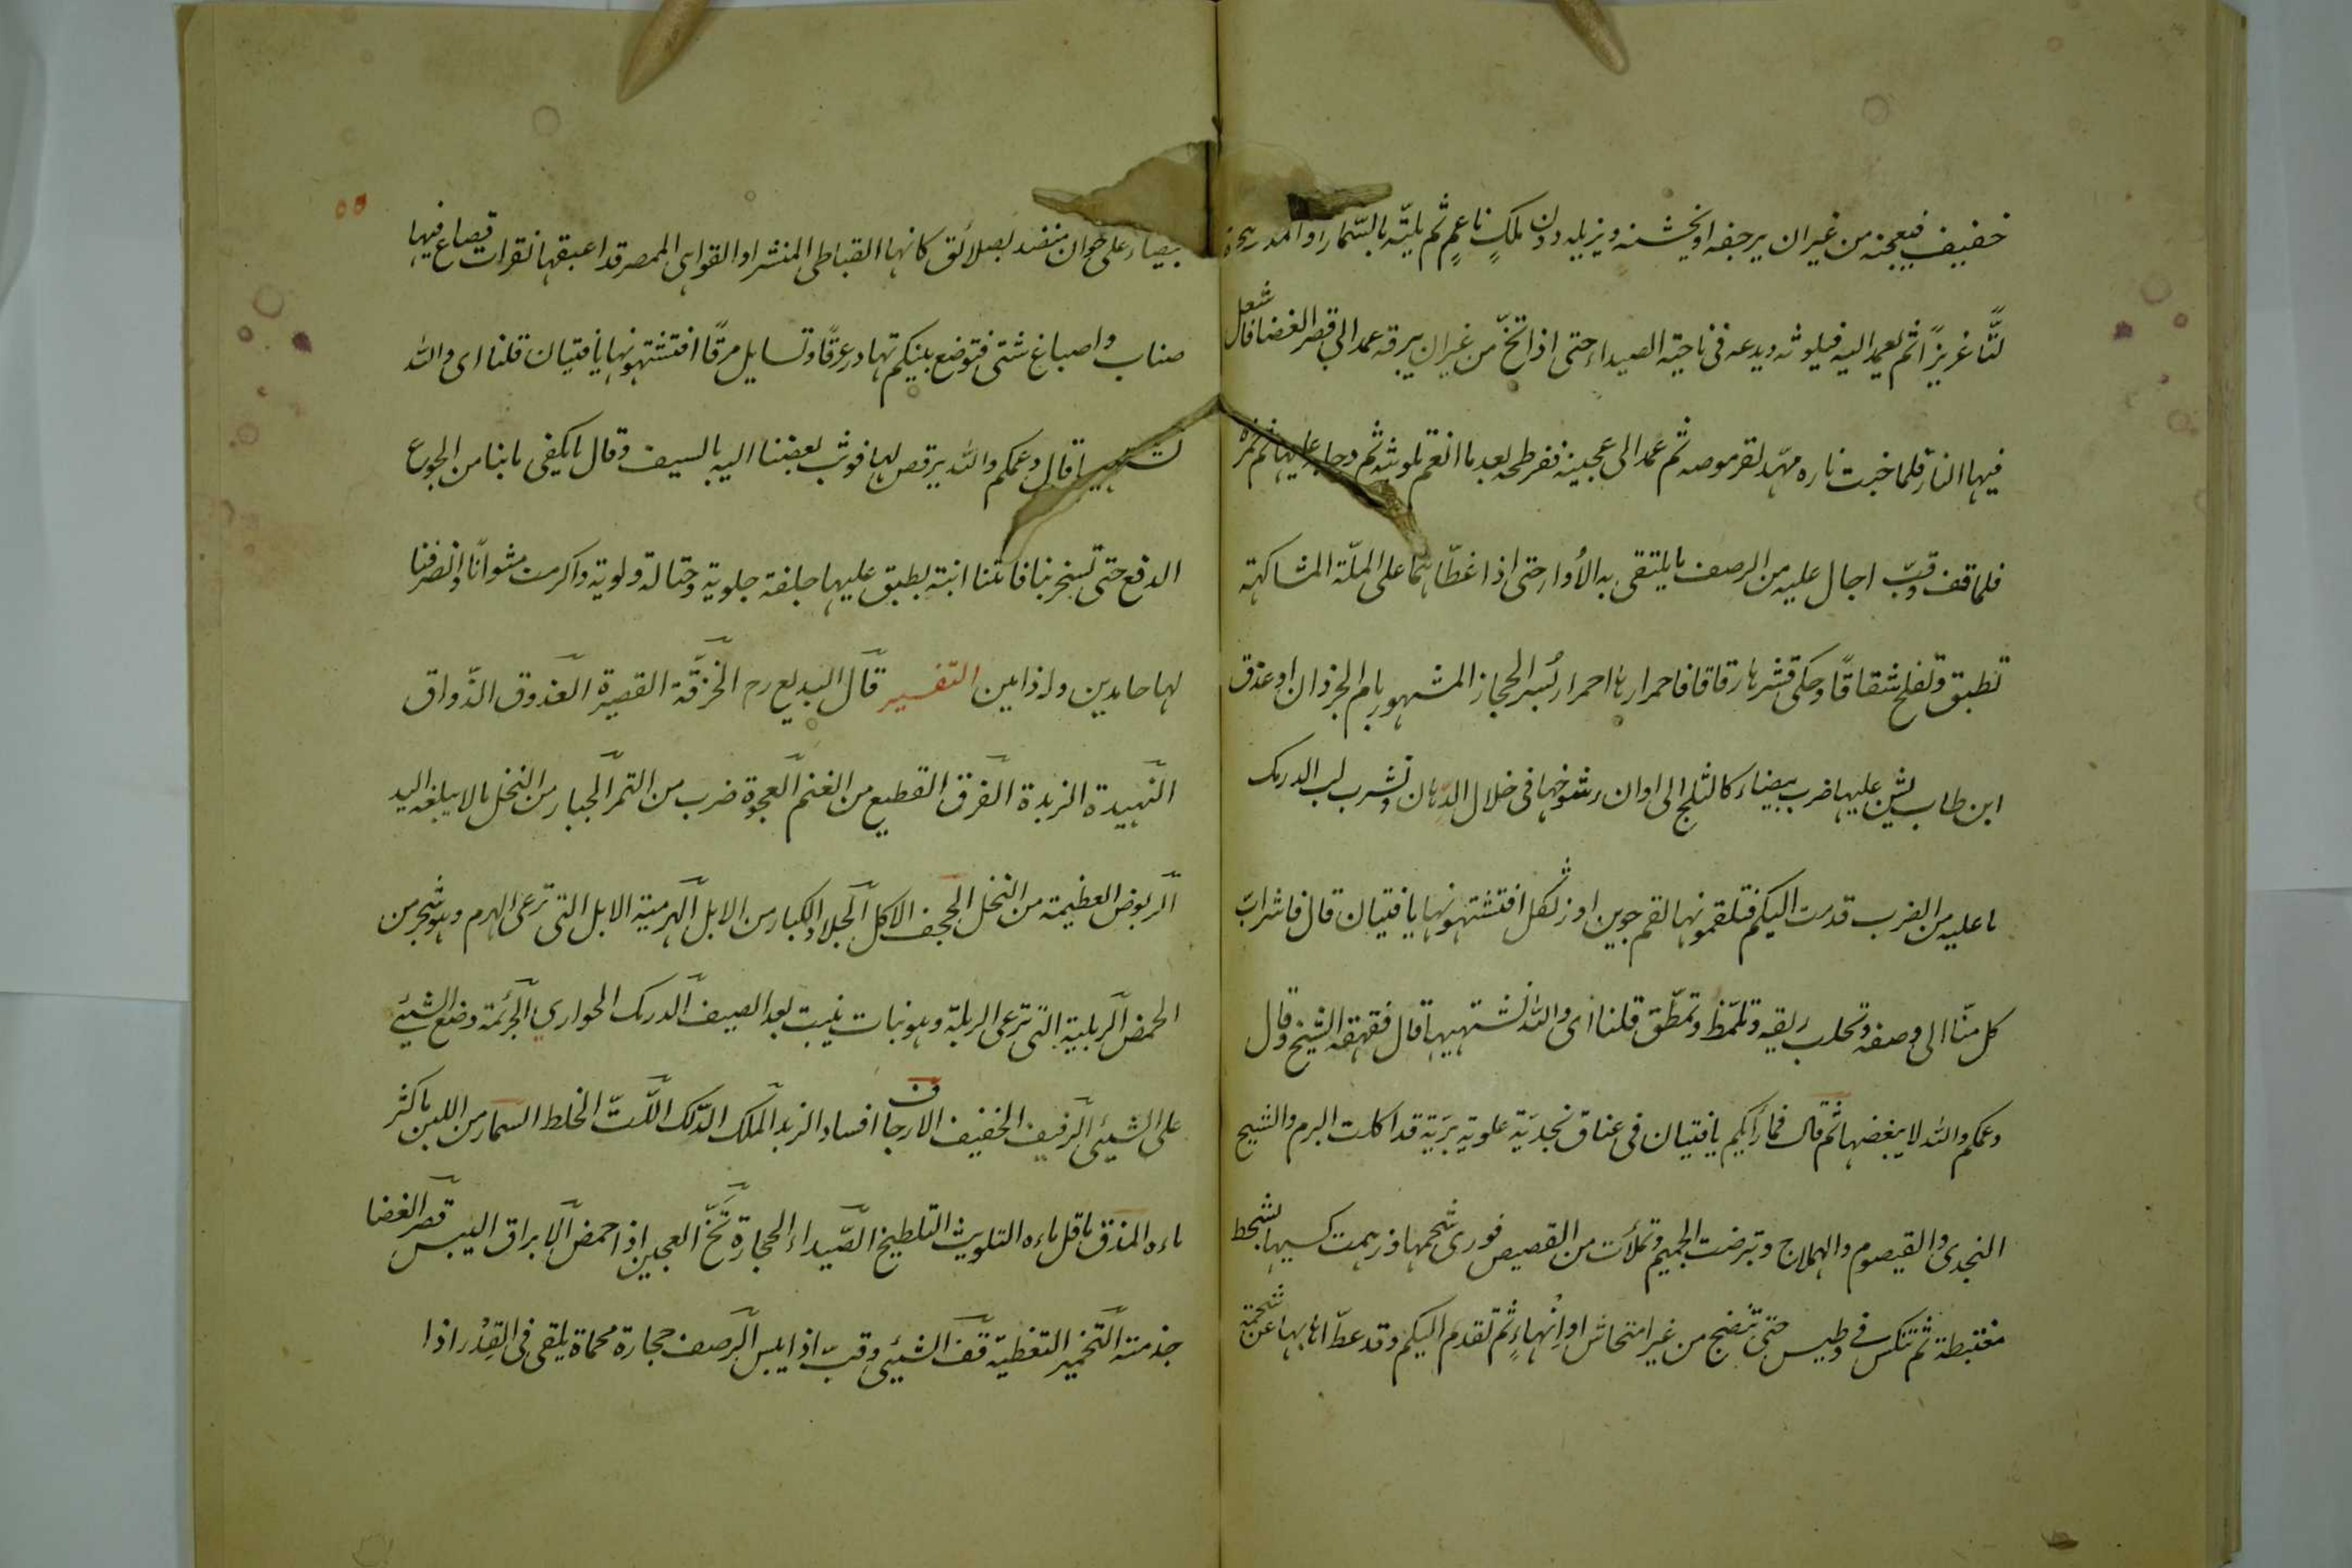 خفيف فيعجنه من غير ان يرجفه او يخشنه ويزيله دون ملكٍ ناعمٍ ثم يلتّه بالسّمار او المذر
لتًّا غزيزًا ثم يعمد اليه فيلوثه ويدعه فى ناحية الصيداء حتى اذا تخّ من غير ان يبرقه عمد الى قصر الغضا فاشعل
فيها النار فلما خبت ناره مهّد لقرموصه ثم عمد الى عجينه ففرطحه بعد ما انعم تلويثه ثم دحا به عليها ثم خمره
فلما قف وقبّ اجال عليه من الرصف ما يلتقى به الأوار حتى اذا غطّاهما على الملّة المشاكهة
تطبق وتفلح شقاقًا وحكى قشرها رقاقا فاحمرارها احمرار بُسر الحجاز المشهور بام الجرذان او عذق
ابن طاب يشن عليها ضرب بيضاء كالثلج الى اوان رشوخها فى خلال الدّهان وتشرب لب الدرمك
ما عليه من الضرب قدمت اليكم فتلقمونها لقم جوين او زنكل افتشتهونها يا فتيان قال فاشرابّ
كل منّا الى وصفه وتحلب ريقه وتلمّظ وتمطّق قلنا اى والله نشتهيها قال فقهقه الشيخ وقال
وعمكم والله لا يبغضها ثم قال فما رأيكم يا فتيان فى عناق نجديّة علوية بَرّيّة قد اكلت البرم والشيح
النجدى والقيصوم والهملاج وتبرضت الجميم وتملأت من القصيص فورى شحمها وزهمت كسيها تشحط
مغتبطة ثم تنكس فى وطيس حتى تنضج من غير امتحاش او اِنهاءٍ ثم تقدم اليكم وقد عطّ اهابها عن شحمة
بيضاء على خوان منضد بصلائق كانها القباطى المنشر او القواهى الممصر قد اعبقها نقرات قصاع فيها
صناب واصباغ شتى فتوضع بينكم تهادر عرقًا وتسايل مرقًا افتشتهونها يا فتيان قلنا اى والله
نشتهيها قال وعمكم والله يرقص لها فوثب بعضنا اليه بالسيف وقال ما يكفى ما بنا من الجوع
الدقع حتى تسخر بنا فاتتنا ابنته بطبق عليها جلفة جلوية وحثالة ولوية واكرمت مثوانا وانصرفنا
لها حامدين وله ذامين التفسير قال البديع رح الخرّقة القصيرة العذوق الذّواق
النّهيدة الزبدة الفرق القطيع من الغنم العجوة ضرب من التمر الجبار من النخل ما لا يبلغه اليد
الربوض العظيمة من النخل الجحف الاكل الجلاد الكبار من الابل الهرمية الابل التى ترعى الهرم وهو شجر من
الحمض الربلية التى ترعى الربلة وهو نبات ينبت بعد الصيف الدرمك الحوارى الجرثمة وضع الشيئ
على الشيئ الرفيف الخفيف الارجاف افساد الزبد الملك الدّلك اللّتّ الخلط السمار من اللبن ما كثر
ماءه المذق ما قل ماءه التلويث التلطيخ الصّيداء الحجارة تخّ العجين اذا حمض الابراق اليبس قصر الغضا
جذمته التخمير التغطية قف الشيئ وقبّ اذا يبس الرصف حجارة محماة يلقى فى القِدْر اذا